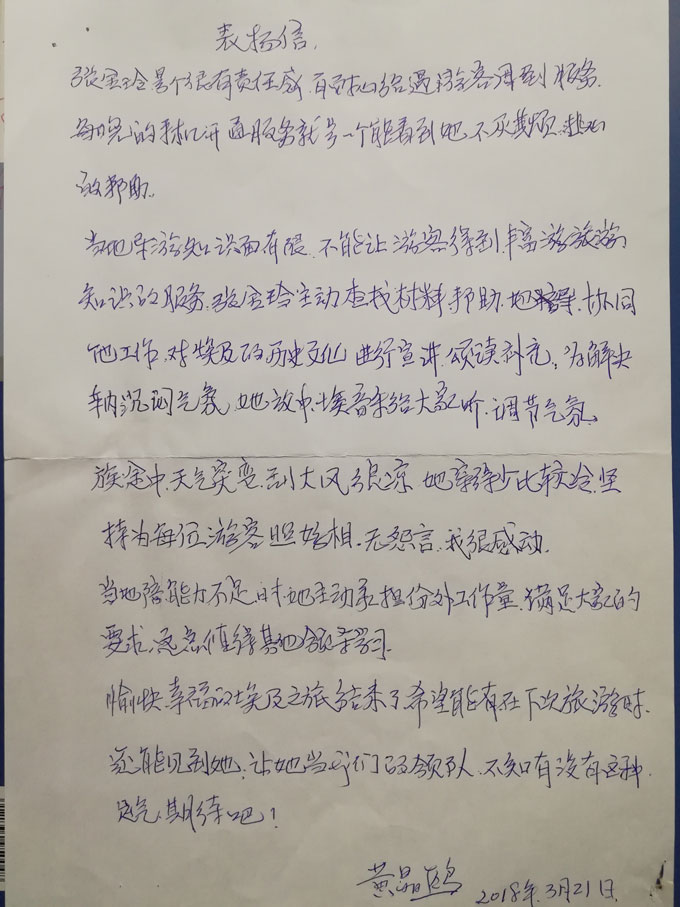 表扬信.
张金玲是个很有责任感,有耐心给遇游客周到服务.
每晚的手机开通服务就一个能看到吧.不厌其烦.
的帮助.
当地导游知识面有限.不能让游客得到丰富游旅游
知识的服务.张金玲主动查找材料帮助.地.协同
他工作.对埃及的历史文化进行宣讲.颂读补充;为解决
车内沉闷气氛.她放中.埃音乐给大家听.调节气氛.
旅途中.天气突变.刮大风很凉.她穿得少比较冷.坚
持为每位游客照好相.无怨言.我很感动.
当地陪能力不足时.她主动承担份外工作量.满足大家的
要求.这点值得其他领队学习.
愉快.幸福的埃及之旅结束了希望能有在下次旅游时.
还能见到她;让她当我们的领队.不知有没有这种
运气.期待吧!
黄晶鸥 2018年.3月21日.